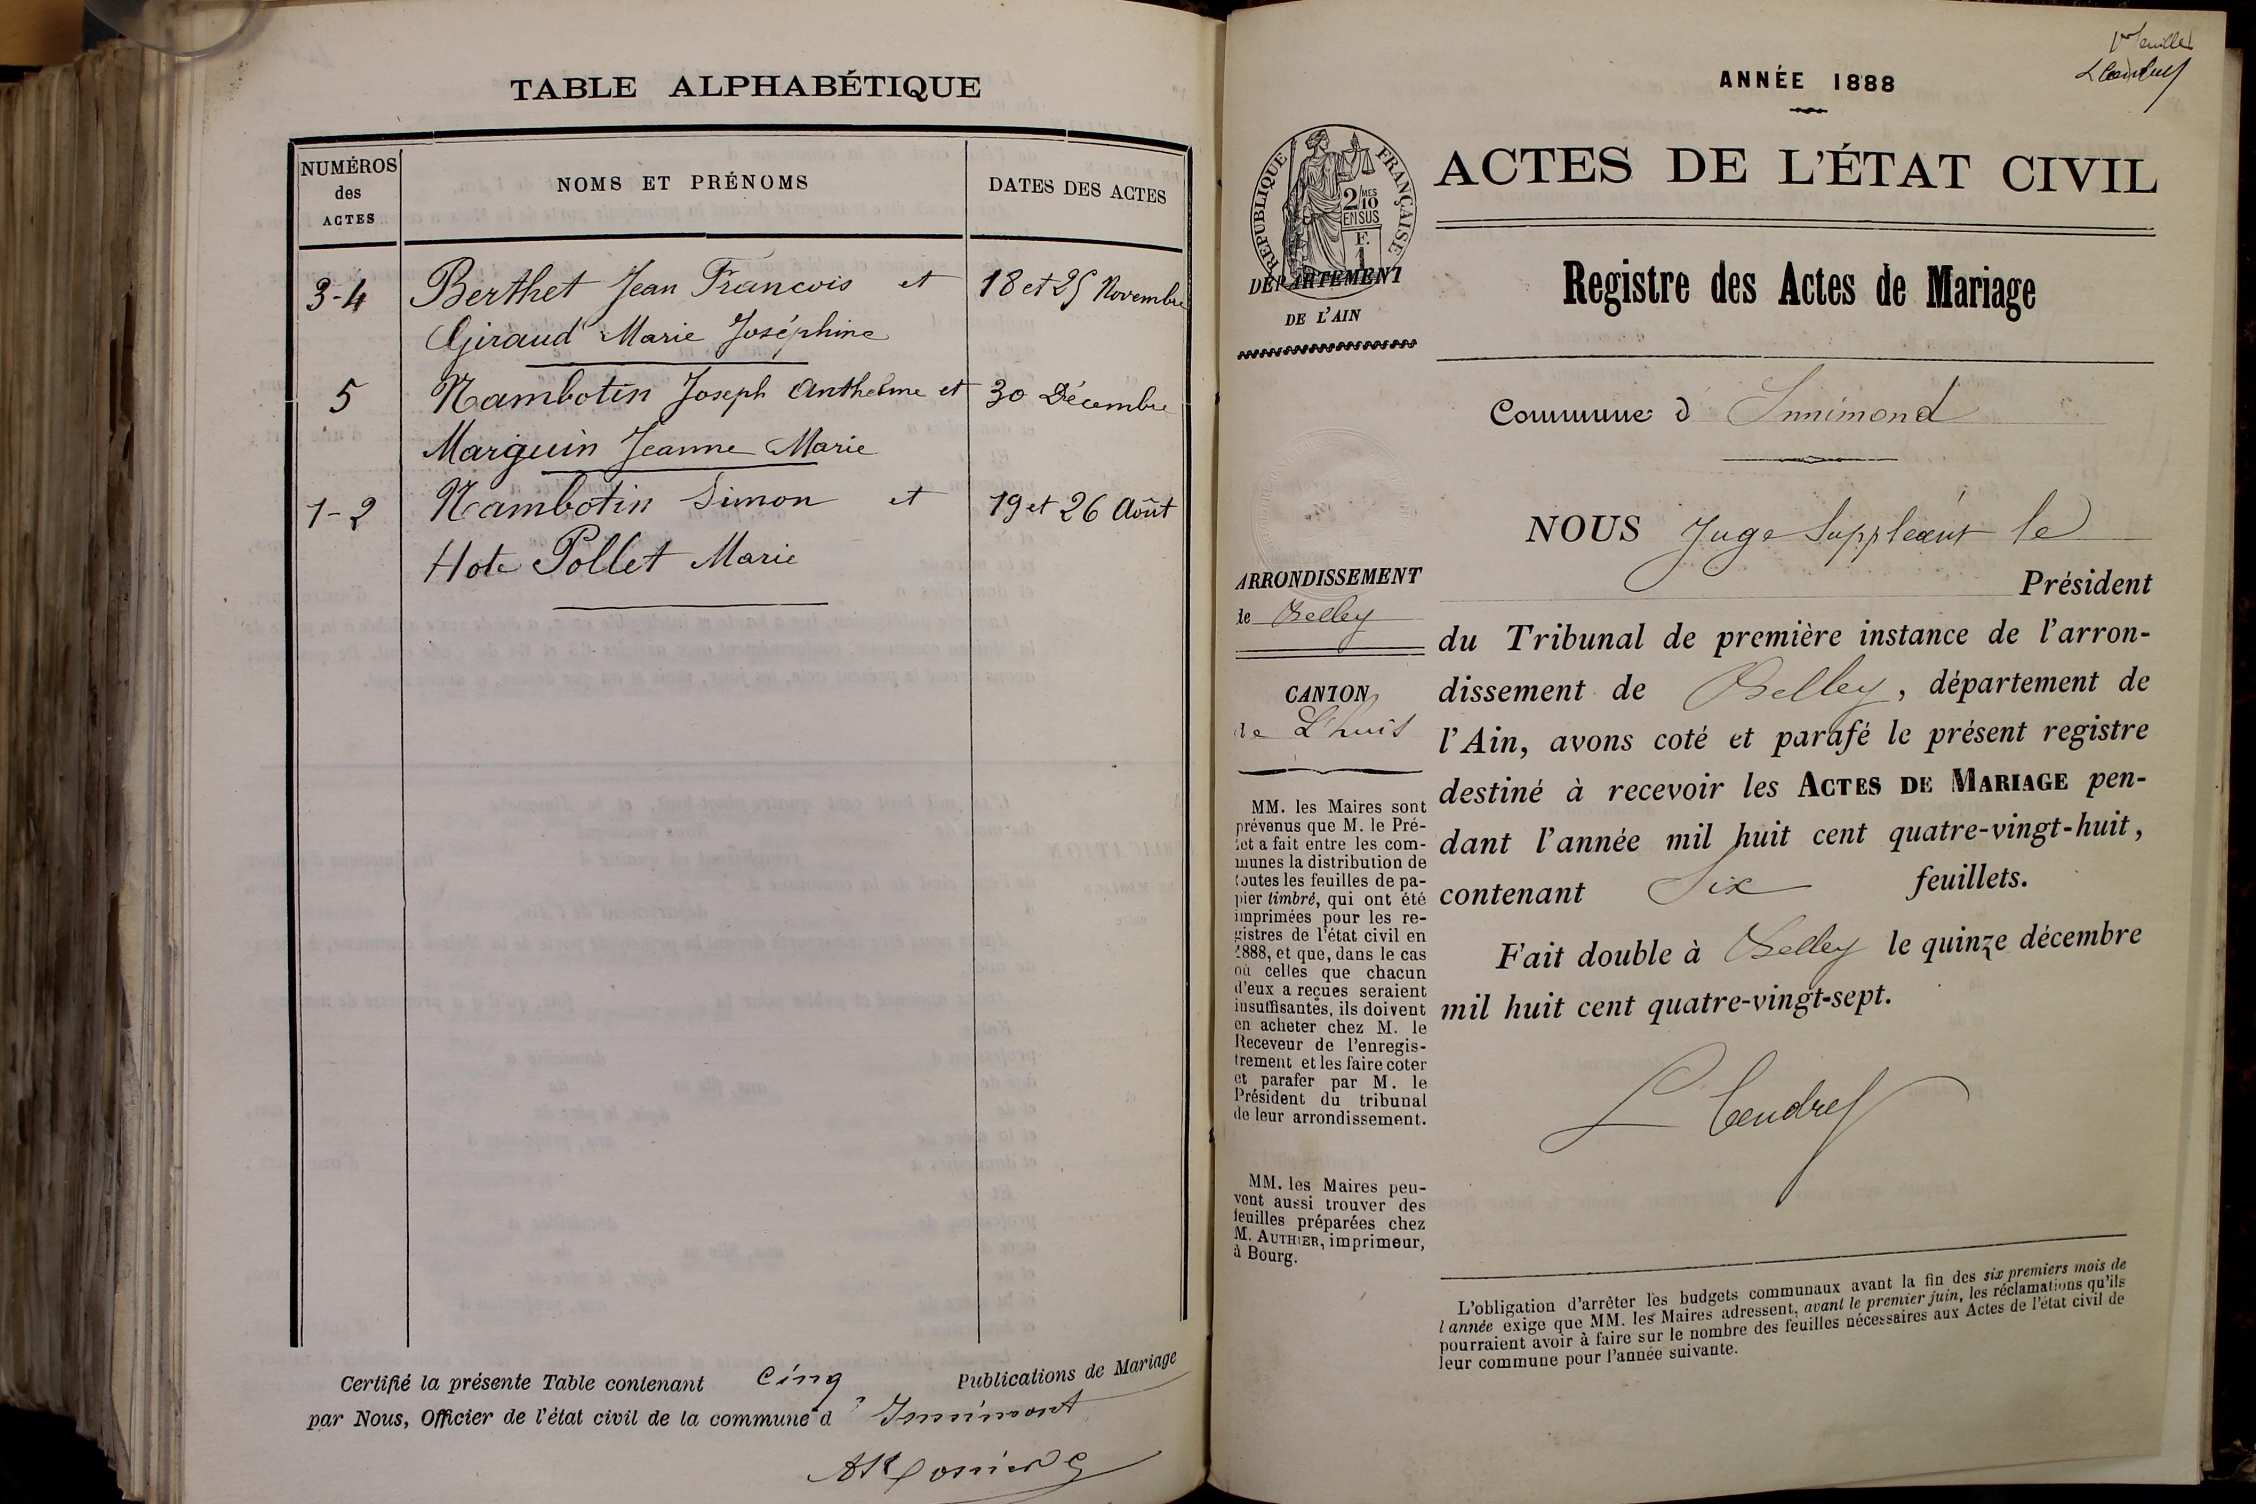 TABLE ALPHABÉTIQUE
NUMÉROS
des
ACTES
NOMS ET PRÉNOMS
DATES DES ACTES
3-4 Berthet Jean Francois et 18 et 25 Novembre
Giraud Marie Joséphine
5 Nambotin Joseph Anthelme et 30 Décembre
Marguin Jeanne Marie
1-2 Nambotin Simon et 19 et 26 Août
Hote Pollet Marie
Certifié la présente Table contenant cinq Publications de Mariage
par Nous, Officier de l'état civil de la commune d' Innimont
1er feuillet
ANNÉE 1888
RÉPUBLIQUE FRANÇAISE
2/10 MES
EN SUS
F.
1
DÉPARTEMENT
DE L'AIN
ACTES DE L'ÉTAT CIVIL
Registre des Actes de Mariage
Commune d Innimond
ARRONDISSEMENT
de Belley
CANTON
de L'huis
MM. les Maires sont
prévenus que M. le Pré-
fet a fait entre les com-
munes la distribution de
toutes les feuilles de pa-
pier timbré, qui ont été
imprimées pour les re-
gistres de l'état civil en
1888, et que, dans le cas
où celles que chacun
d'eux a reçues seraient
insuffisantes, ils doivent
en acheter chez M. le
Receveur de l'enregis-
trement et les faire coter
et parafer par M. le
Président du tribunal
de leur arrondissement.
MM. les Maires peu-
vent aussi trouver des
feuilles préparées chez
M. AUTHIER, imprimeur,
à Bourg.
NOUS Juge Suppléant le
Président
du Tribunal de première instance de l'arron-
dissement de Belley, département de
l'Ain, avons coté et parafé le présent registre
destiné à recevoir les ACTES DE MARIAGE pen-
dant l'année mil huit cent quatre-vingt-huit,
contenant Six feuillets.
Fait double à Belley le quinze décembre
mil huit cent quatre-vingt-sept.
L'obligation d'arrêter les budgets communaux avant la fin des six premiers mois de
l'année exige que MM. les Maires adressent, avant le premier juin, les réclamations qu'ils
pourraient avoir à faire sur le nombre des feuilles nécessaires aux Actes de l'état civil de
leur commune pour l'année suivante.